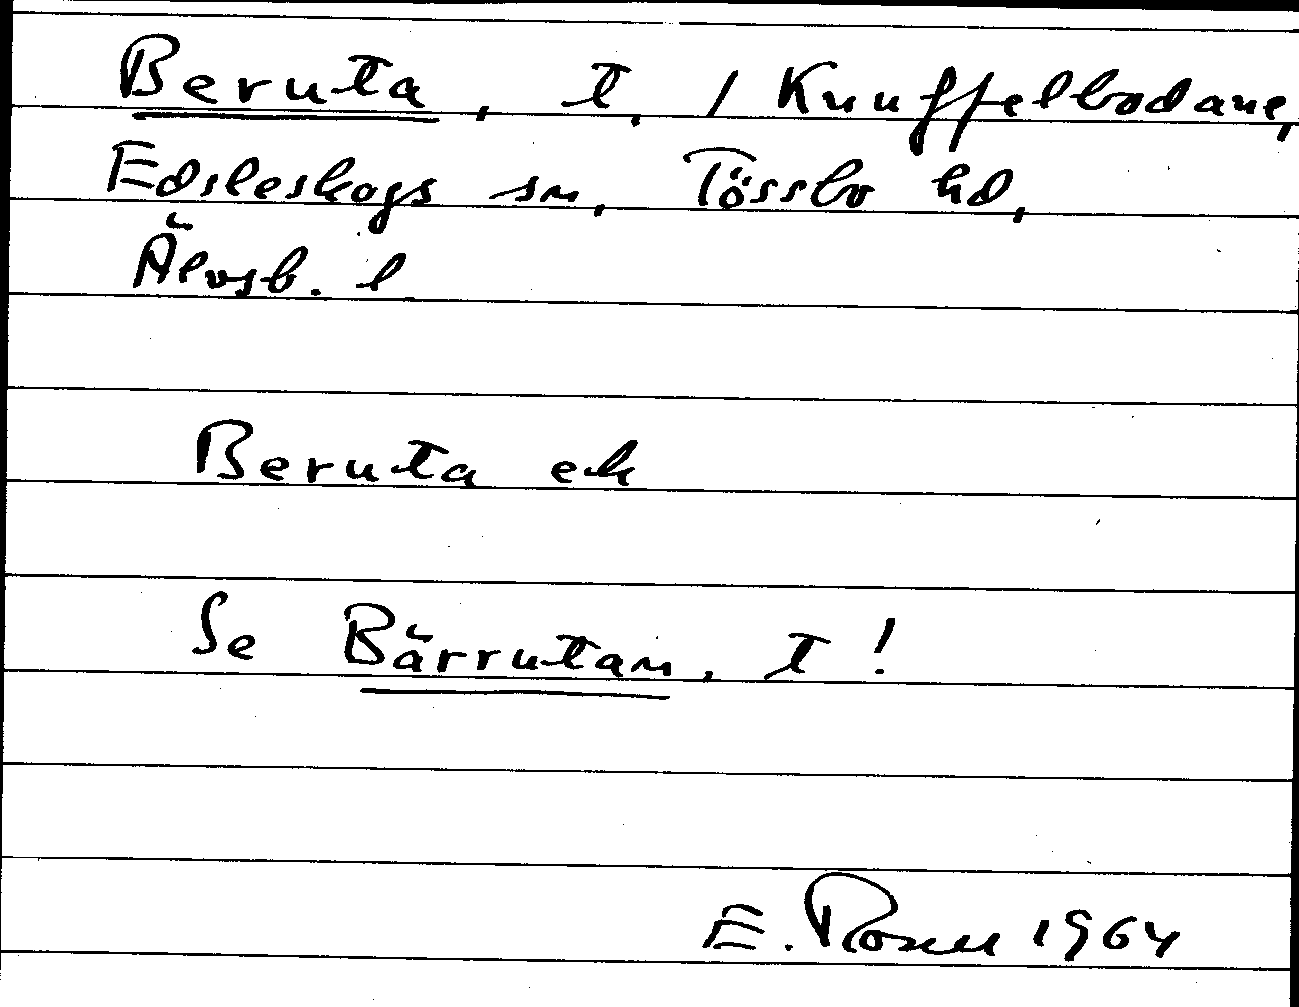 Beruta, t, / Knuffelbodane,
Edsleskogs sn, Tössbo hd,
Älvsb. l
Beruta ek
Se Bärrutan, t!
E. Rosell 1964